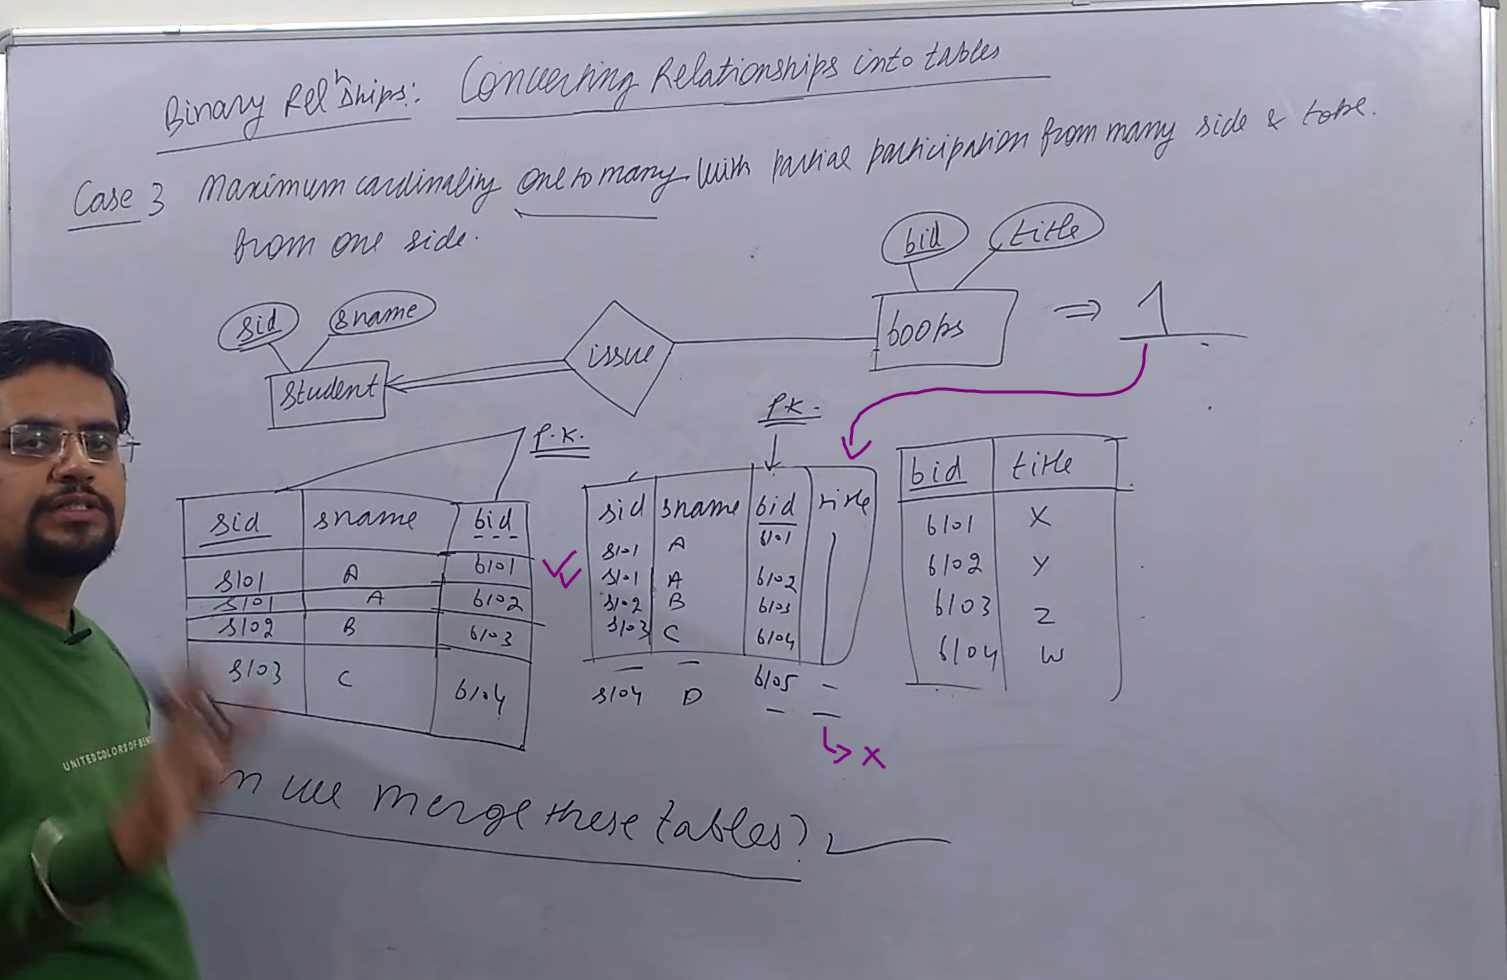 Binary Relnships: Converting Relationships into tables
Case 3 Maximum cardinality one to many with partial participation from many side &
from one side.
bid title
sid sname
student issue books ⇒ 1
P.K. P.K.
sid sname bid
s101 A b101
s101 A b102
s102 B b103
s103 C b104
sid sname bid title
s101 A b101
s101 A b102
s102 B b103
s103 C b104
— — b105 –
s104 D — —
x
bid title
b101 X
b102 Y
b103 Z
b104 W
n we merge these tables?
UNITED COLORS OF BEN